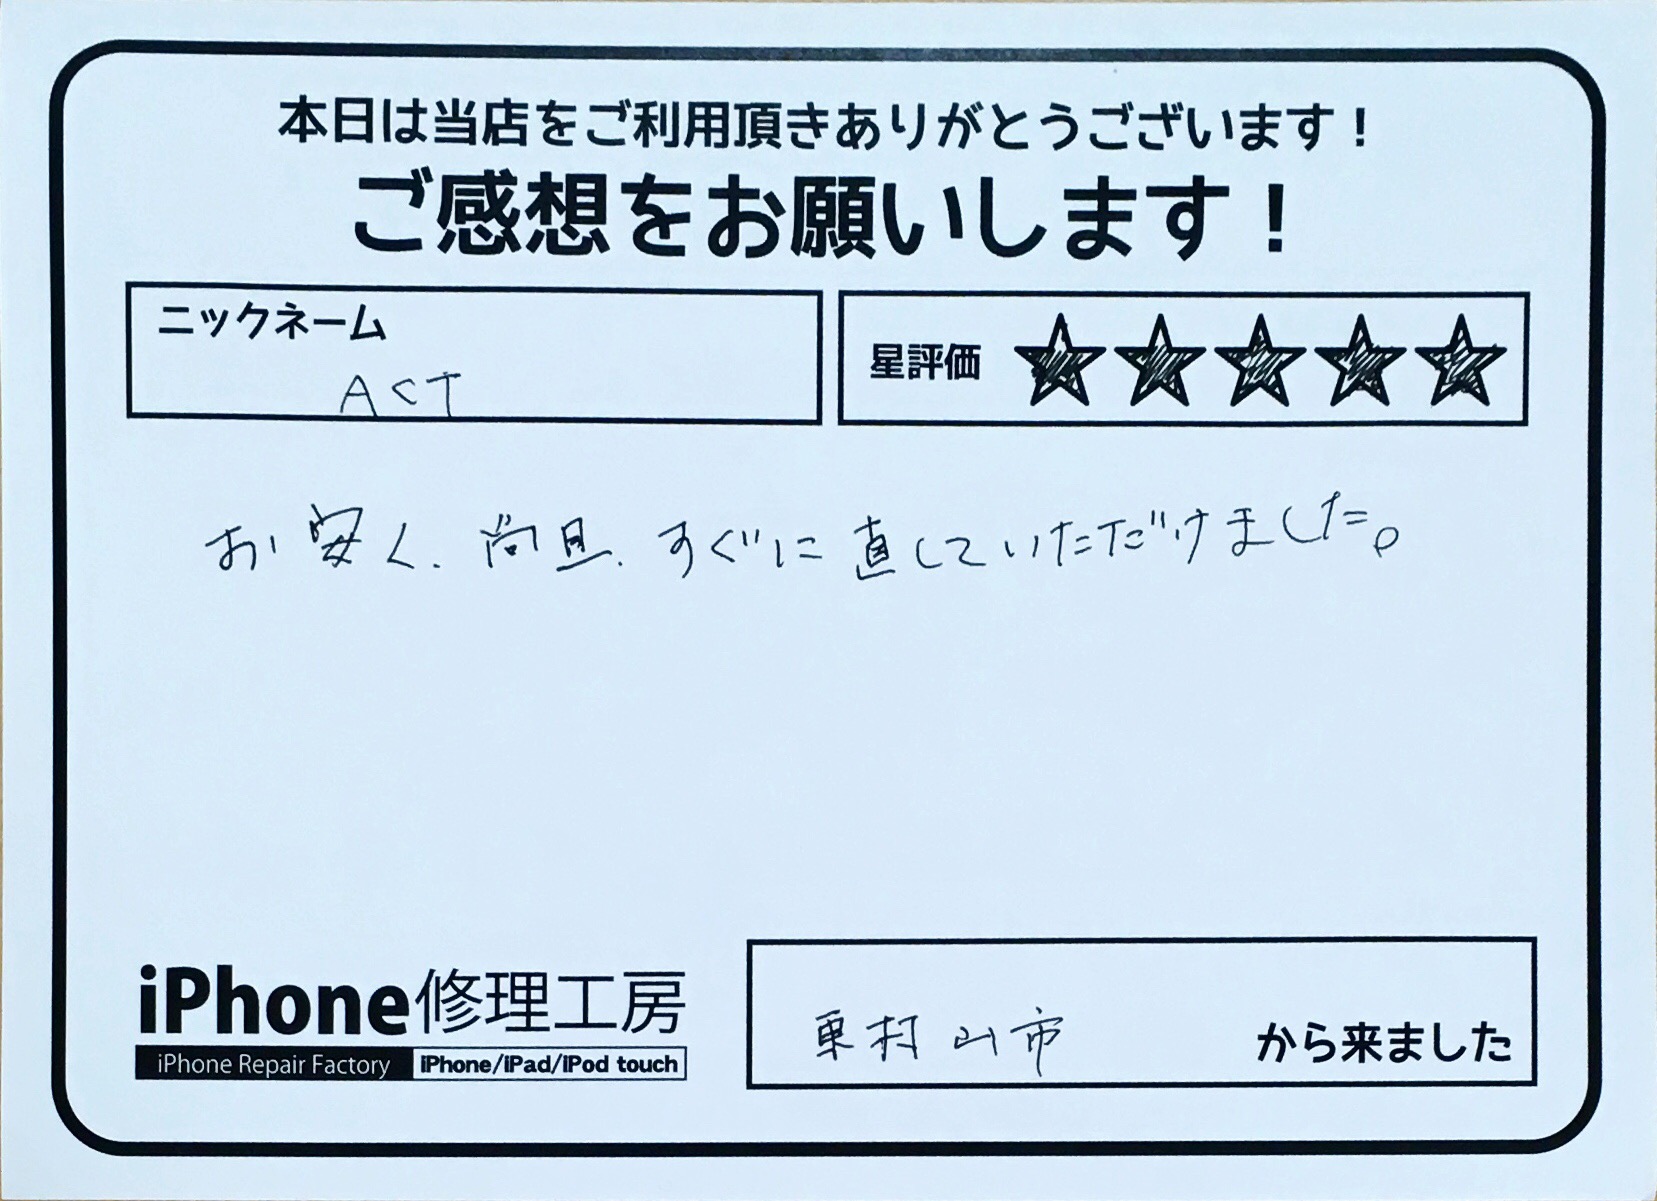 本日は当店をご利用頂きありがとうございます！
ご感想をお願いします！
ニックネーム
ACT
星評価 ★★★★★
お安く、尚且、すぐに直していただけました。
iPhone修理工房
iPhone Repair Factory iPhone/iPad/iPod touch
東村山市 から来ました